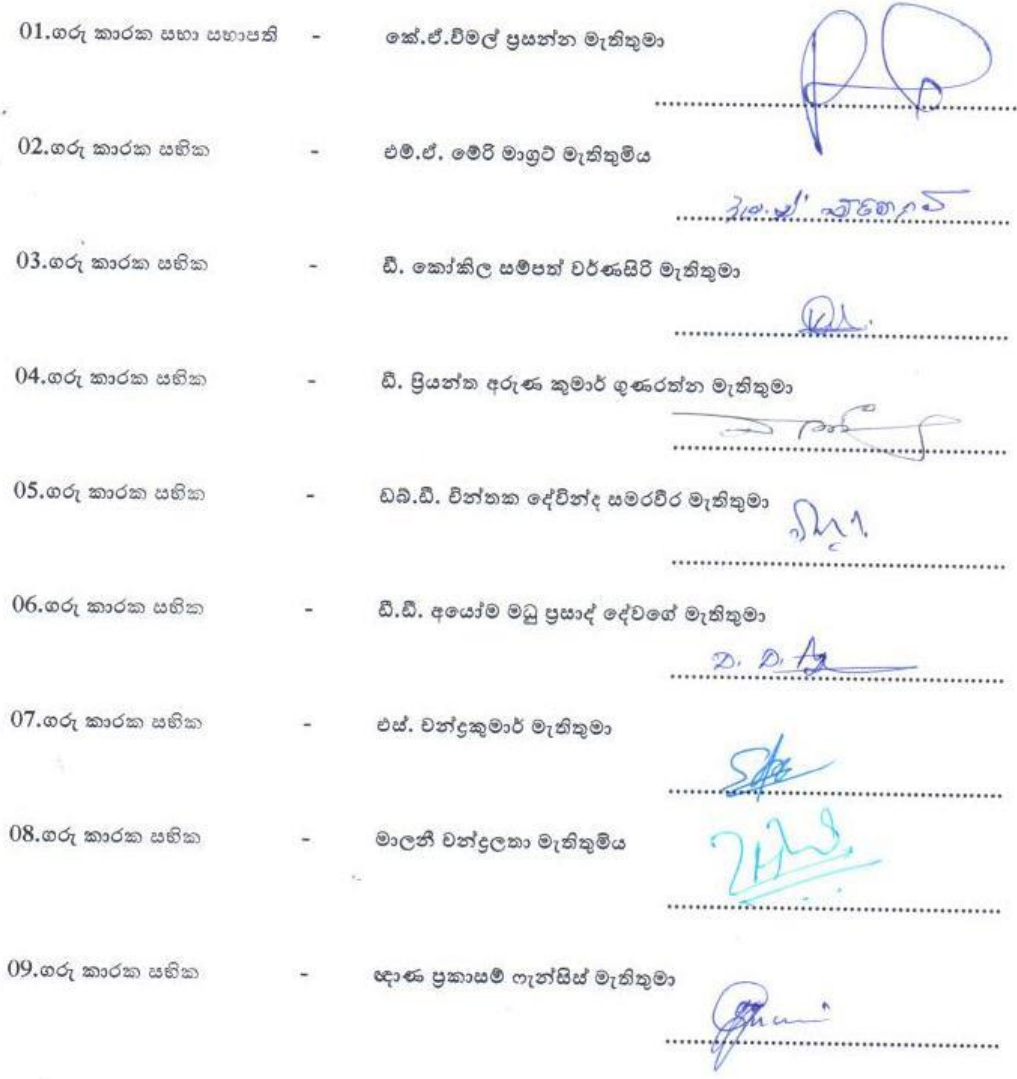 01.ගරු කාරක සභා සභාපති - කේ.ඒ.විමල් ප්‍රසන්න මැතිතුමා
02.ගරු කාරක සභික - එම්.ඒ. මේරි මාග්‍රට් මැතිතුමිය
03.ගරු කාරක සභික - ඩී. කෝකිල සම්පත් වර්ණසිරි මැතිතුමා
04.ගරු කාරක සභික - ඩී. ප්‍රියන්ත අරුණ කුමාර් ගුණරත්න මැතිතුමා
05.ගරු කාරක සභික - ඩබ්.ඩී. චින්තක දේවින්ද සමරවීර මැතිතුමා
06.ගරු කාරක සභික - ඩී.ඩී. අයෝම මධු ප්‍රසාද් දේවගේ මැතිතුමා
D. D.
07.ගරු කාරක සභික - එස්. චන්ද්‍රකුමාර් මැතිතුමා
08.ගරු කාරක සභික - මාලනී චන්ද්‍රලතා මැතිතුමිය
09.ගරු කාරක සභික - ඥාණ ප්‍රකාසම් ෆැන්සිස් මැතිතුමා